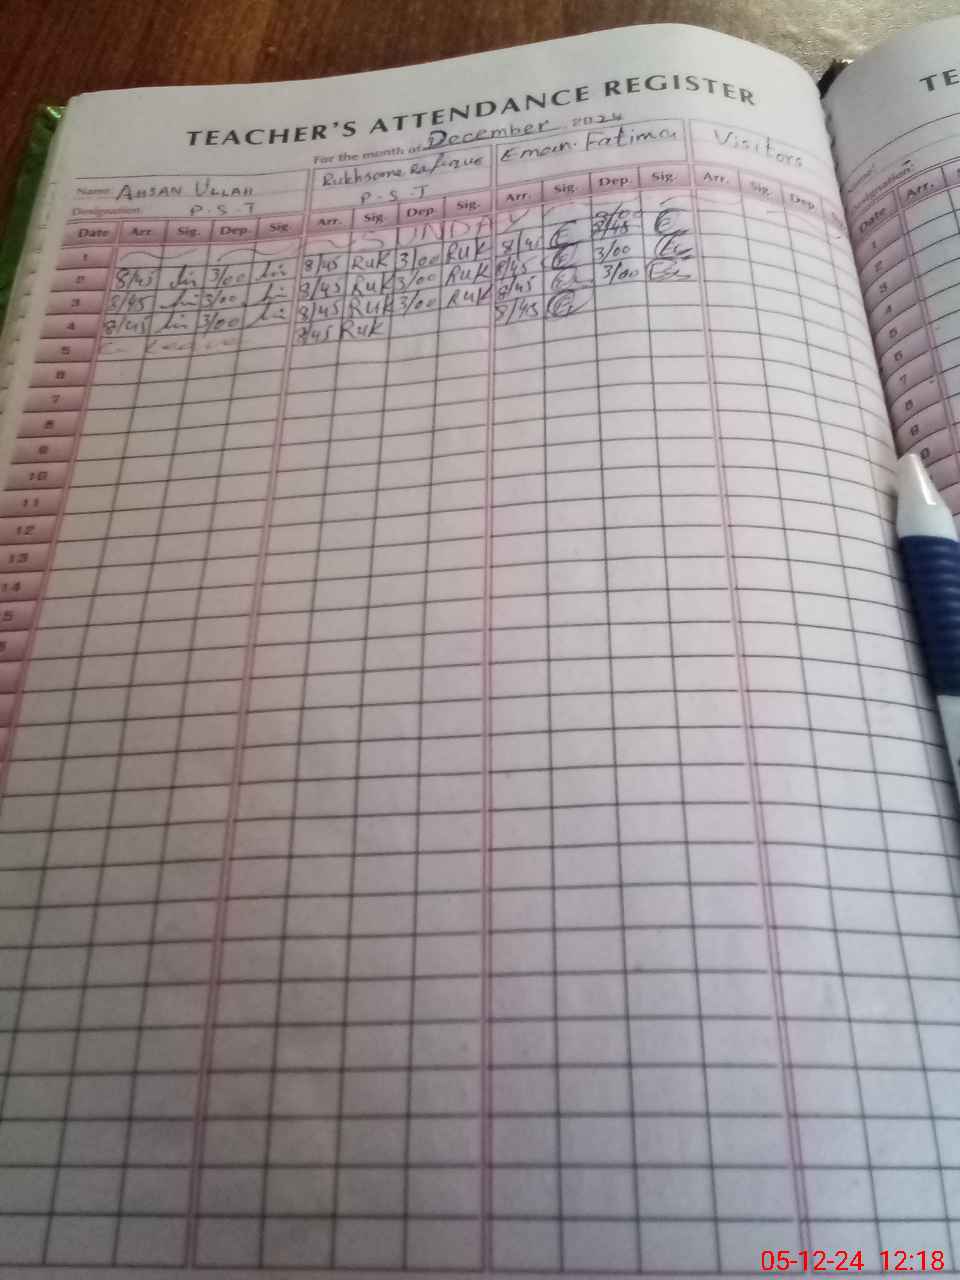 TEACHER'S ATTENDANCE REGISTER
TE
For the month of December 2024
Name: AHSAN ULLAH Rukhsana Rafique Eman Fatima Visitors
Designation P.S.T P.S.T Designation
Date Arr. Sig. Dep. Sig. Arr. Sig. Dep. Sig. Arr. Sig. Dep. Sig. Arr. Sig. Dep. Date Arr.
1 SUNDAY 1
2 8/45 3/00 8/45 RUK 3/00 RUK 8/45 8/45 2
3 8/45 3/00 8/45 RUK 3/00 RUK 8/45 3/00 3
4 8/45 3/00 8/45 RUK 3/00 RUK 8/45 3/00 4
5 8/45 RUK 8/45 5
6 6
7 7
8 8
9 9
10
11
12
13
14
5
05-12-24 12:18